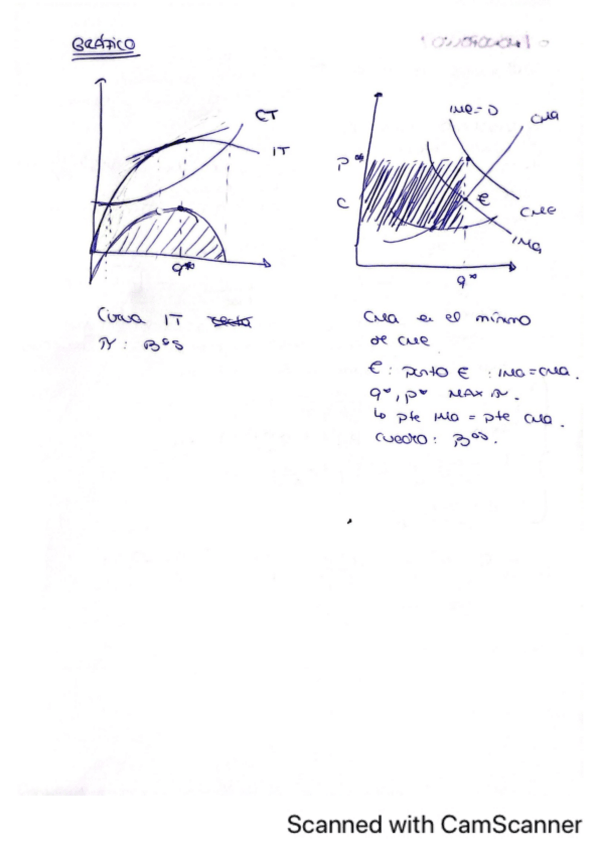 GRÁFICO
CT
IT
q*
Curva IT recta
π: Bºs
IMe=D
CMa
P*
C
E
CMe
IMa
q*
CMa en el mínimo
de CMe
E: punto E : IMa=CMa.
q*, p* MAX π.
↳ pte IMa = pte CMa.
cuadro: Bºs.
Scanned with CamScanner